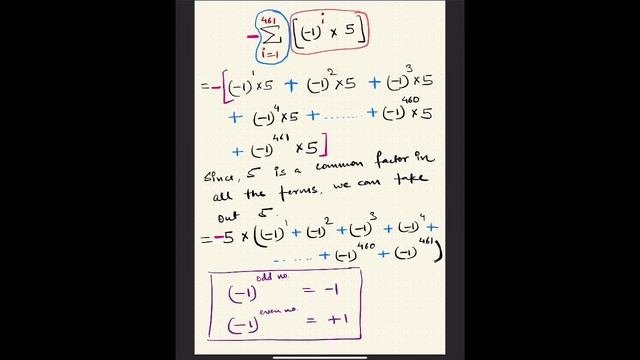 - 461 Σ i=1 [(-1)^i × 5]
= -[(-1)^1 ×5 + (-1)^2 ×5 + (-1)^3 ×5
+ (-1)^4 ×5 + ........ + (-1)^460 ×5
+ (-1)^461 ×5]
Since, 5 is a common factor in
all the terms, we can take
out 5.
= -5 × ((-1)^1 + (-1)^2 + (-1)^3 + (-1)^4 +
........ + (-1)^460 + (-1)^461)
(-1)^odd no. = -1
(-1)^even no. = +1